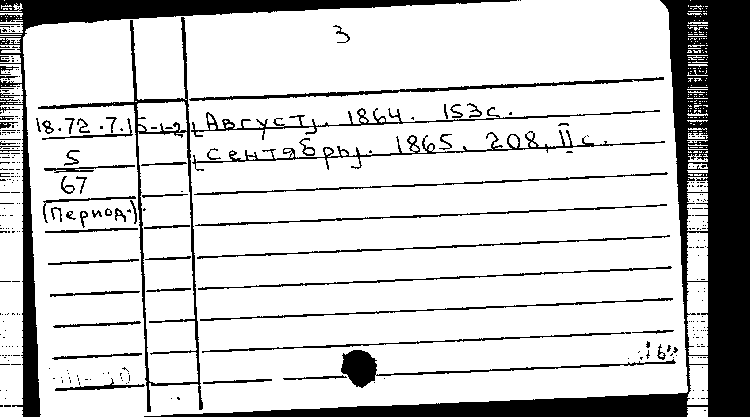 3
18.72.7.15-1-2 [Август]. 1864. 153 с.
5 [Сентябрь]. 1865. 208, II с.
67
(Период.)